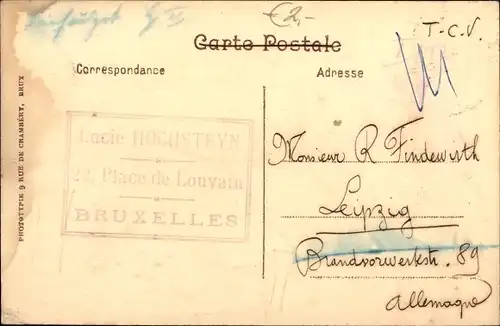 €2,-
T.C.V.
Carte Postale
Correspondance
Adresse
PHOTOTYPIE 9 RUE DE CHAMBÉRY, BRUX
Lucie HOCUSTEYN
22, Place de Louvain
BRUXELLES
Monsieur R Findewirth
Leipzig
Brandvorwerkstr. 89
Allemagne